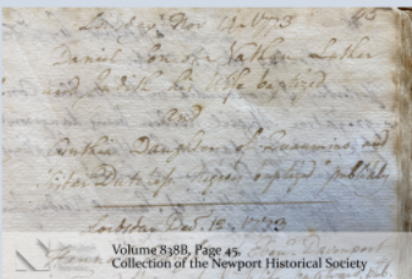 Lordsday Nov 14 1773 45
Daniel Son of Nathan Luther
and Judith his Wife baptized
and
Cynthia Daughter of Quaumino and
Sister Dutchess Negroes baptized publickly
Lordsday Dec. 12. 1773
Hannah Davenport
Volume 838B, Page 45,
Collection of the Newport Historical Society